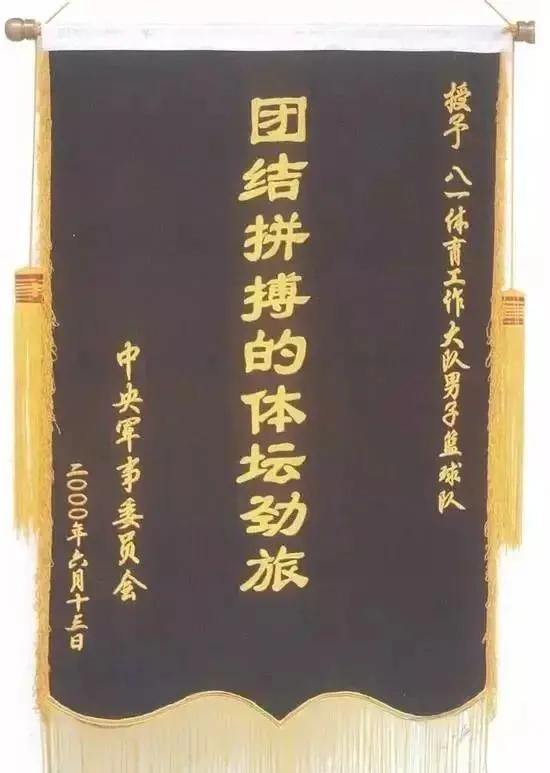 授予 八一体育工作大队男子篮球队
团结拼搏的体坛劲旅
中央军事委员会
二〇〇〇年六月十三日